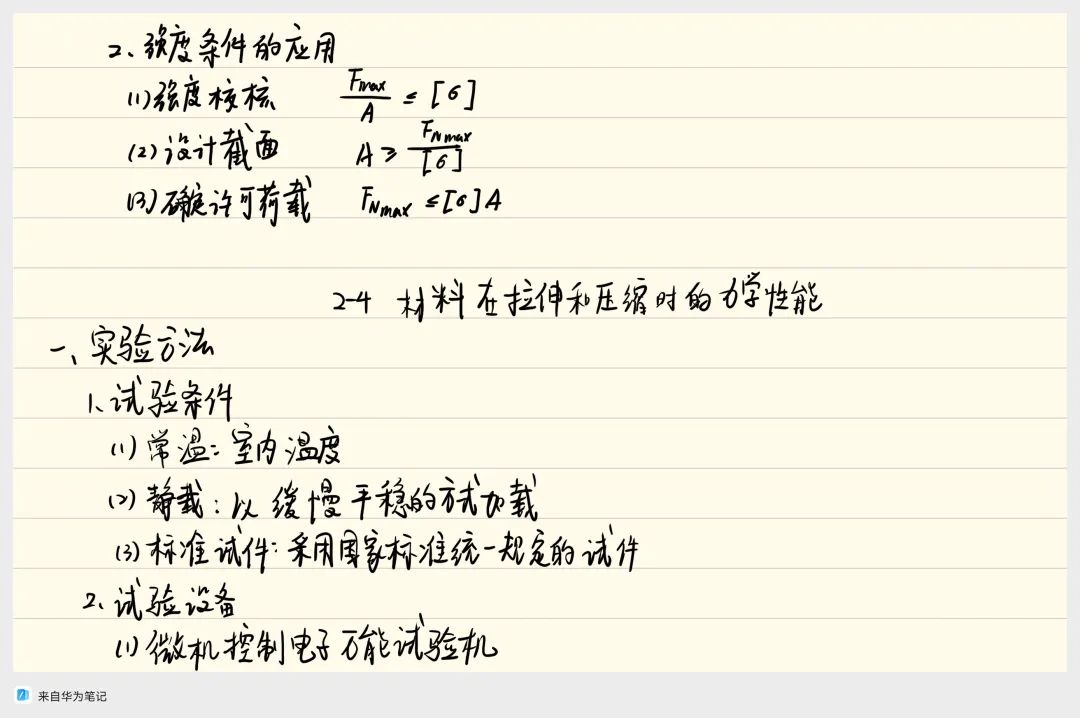 2、强度条件的应用
(1)强度校核 Fmax/A ≤ [σ]
(2)设计截面 A ≥ FNmax/[σ]
(3)确定许可荷载 FNmax ≤ [σ]A
2-4 材料在拉伸和压缩时的力学性能
一、实验方法
1、试验条件
(1)常温:室内温度
(2)静载:以缓慢平稳的方式加载
(3)标准试件:采用国家标准统一规定的试件
2、试验设备
(1)微机控制电子万能试验机
来自华为笔记